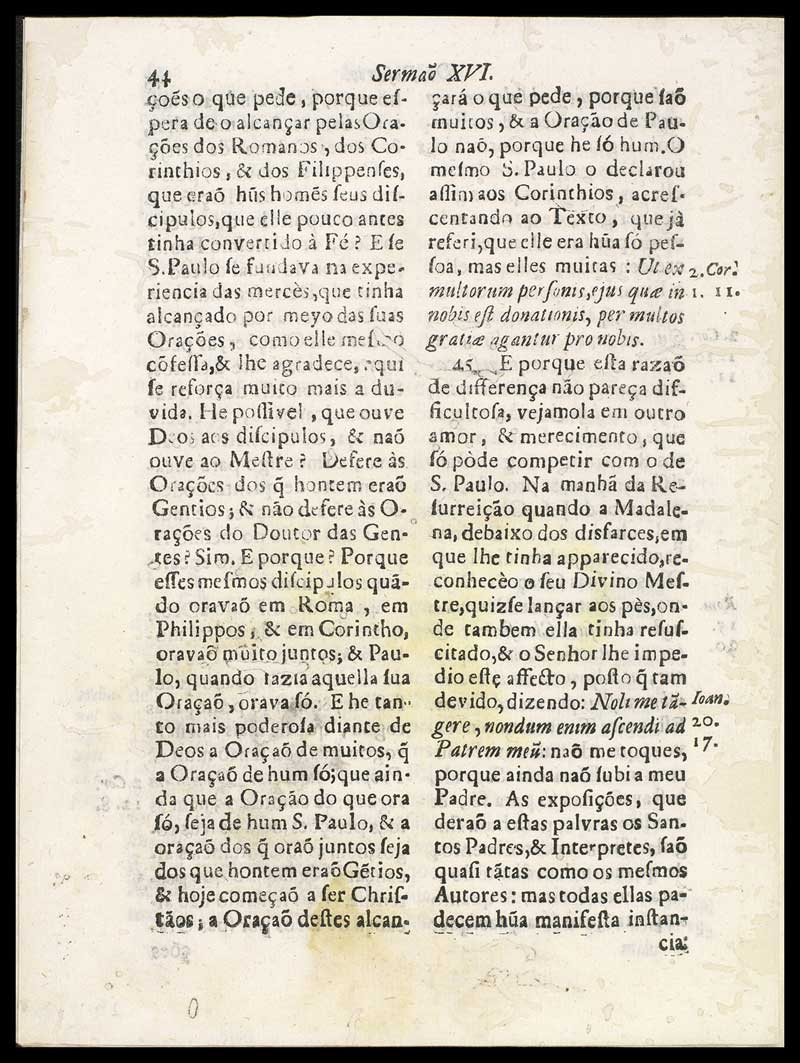 44
Sermaõ XVI.
çoẽs o que pede, porque eſ-
pera de o alcançar pelas Ora-
ções dos Romanos, dos Co-
rinthios, & dos Filippenſes,
que eraõ hũs homẽs ſeus diſ-
cipulos, que elle pouco antes
tinha convertido à Fé? E ſe
S. Paulo ſe fundava na expe-
riencia das mercès, que tinha
alcançado por meyo das ſuas
Orações, como elle meſmo
cõfeſſa, & lhe agradece, aqui
ſe reforça muito mais a du-
vida. He poſſivel, que ouve
Deos aos diſcipulos, & naõ
ouve ao Meſtre? Defere às
Orações dos q̃ hontem eraõ
Gentios; & não defere às O-
rações do Doutor das Gen-
tes? Sim. E porque? Porque
eſſes meſmos diſcipulos quã-
do oravaõ em Roma, em
Philippos, & em Corintho,
oravaõ muito juntos; & Pau-
lo, quando fazia aquella ſua
Oraçaõ, orava ſó. E he tan-
to mais poderoſa diante de
Deos a Oraçaõ de muitos, q̃
a Oraçaõ de hum ſó; que ain-
da que a Oração do que ora
ſó, ſeja de hum S. Paulo, & a
oraçaõ dos q̃ oraõ juntos ſeja
dos que hontem eraõ Gẽtios,
& hoje começaõ a ſer Chriſ-
tãos; a Oraçaõ deſtes alcan-
çará o que pede, porque ſaõ
muitos, & a Oração de Pau-
lo naõ, porque he ſó hum. O
meſmo S. Paulo o declarou
aſſim aos Corinthios, acreſ-
centando ao Texto, que jà
referi, que elle era hũa ſó peſ-
ſoa, mas elles muitas: Ut ex
multorum perſonis, ejus quæ in
nobis eſt donationis, per multos
gratiæ agantur pro nobis.
2. Cor.
1. 11.
45 E porque eſta razaõ
de differença não pareça dif-
ficultoſa, vejamola em outro
amor, & merecimento, que
ſó pòde competir com o de
S. Paulo. Na manhã da Re-
ſurreição quando a Madale-
na, debaixo dos disfarces, em
que lhe tinha apparecido, re-
conhecèo o ſeu Divino Meſ-
tre, quizſe lançar aos pès, on-
de tambem ella tinha reſuſ-
citado, & o Senhor lhe impe-
dio eſte affecto, poſto q̃ tam
devido, dizendo: Noli me tã-
gere, nondum enim aſcendi ad
Patrem meũ: naõ me toques,
Ioan.
20.
17.
porque ainda naõ ſubi a meu
Padre. As expoſições, que
deraõ a eſtas palvras os San-
tos Padres, & Interpretes, ſaõ
quaſi tãtas como os meſmos
Autores: mas todas ellas pa-
decem hũa manifeſta inſtan-
cia: